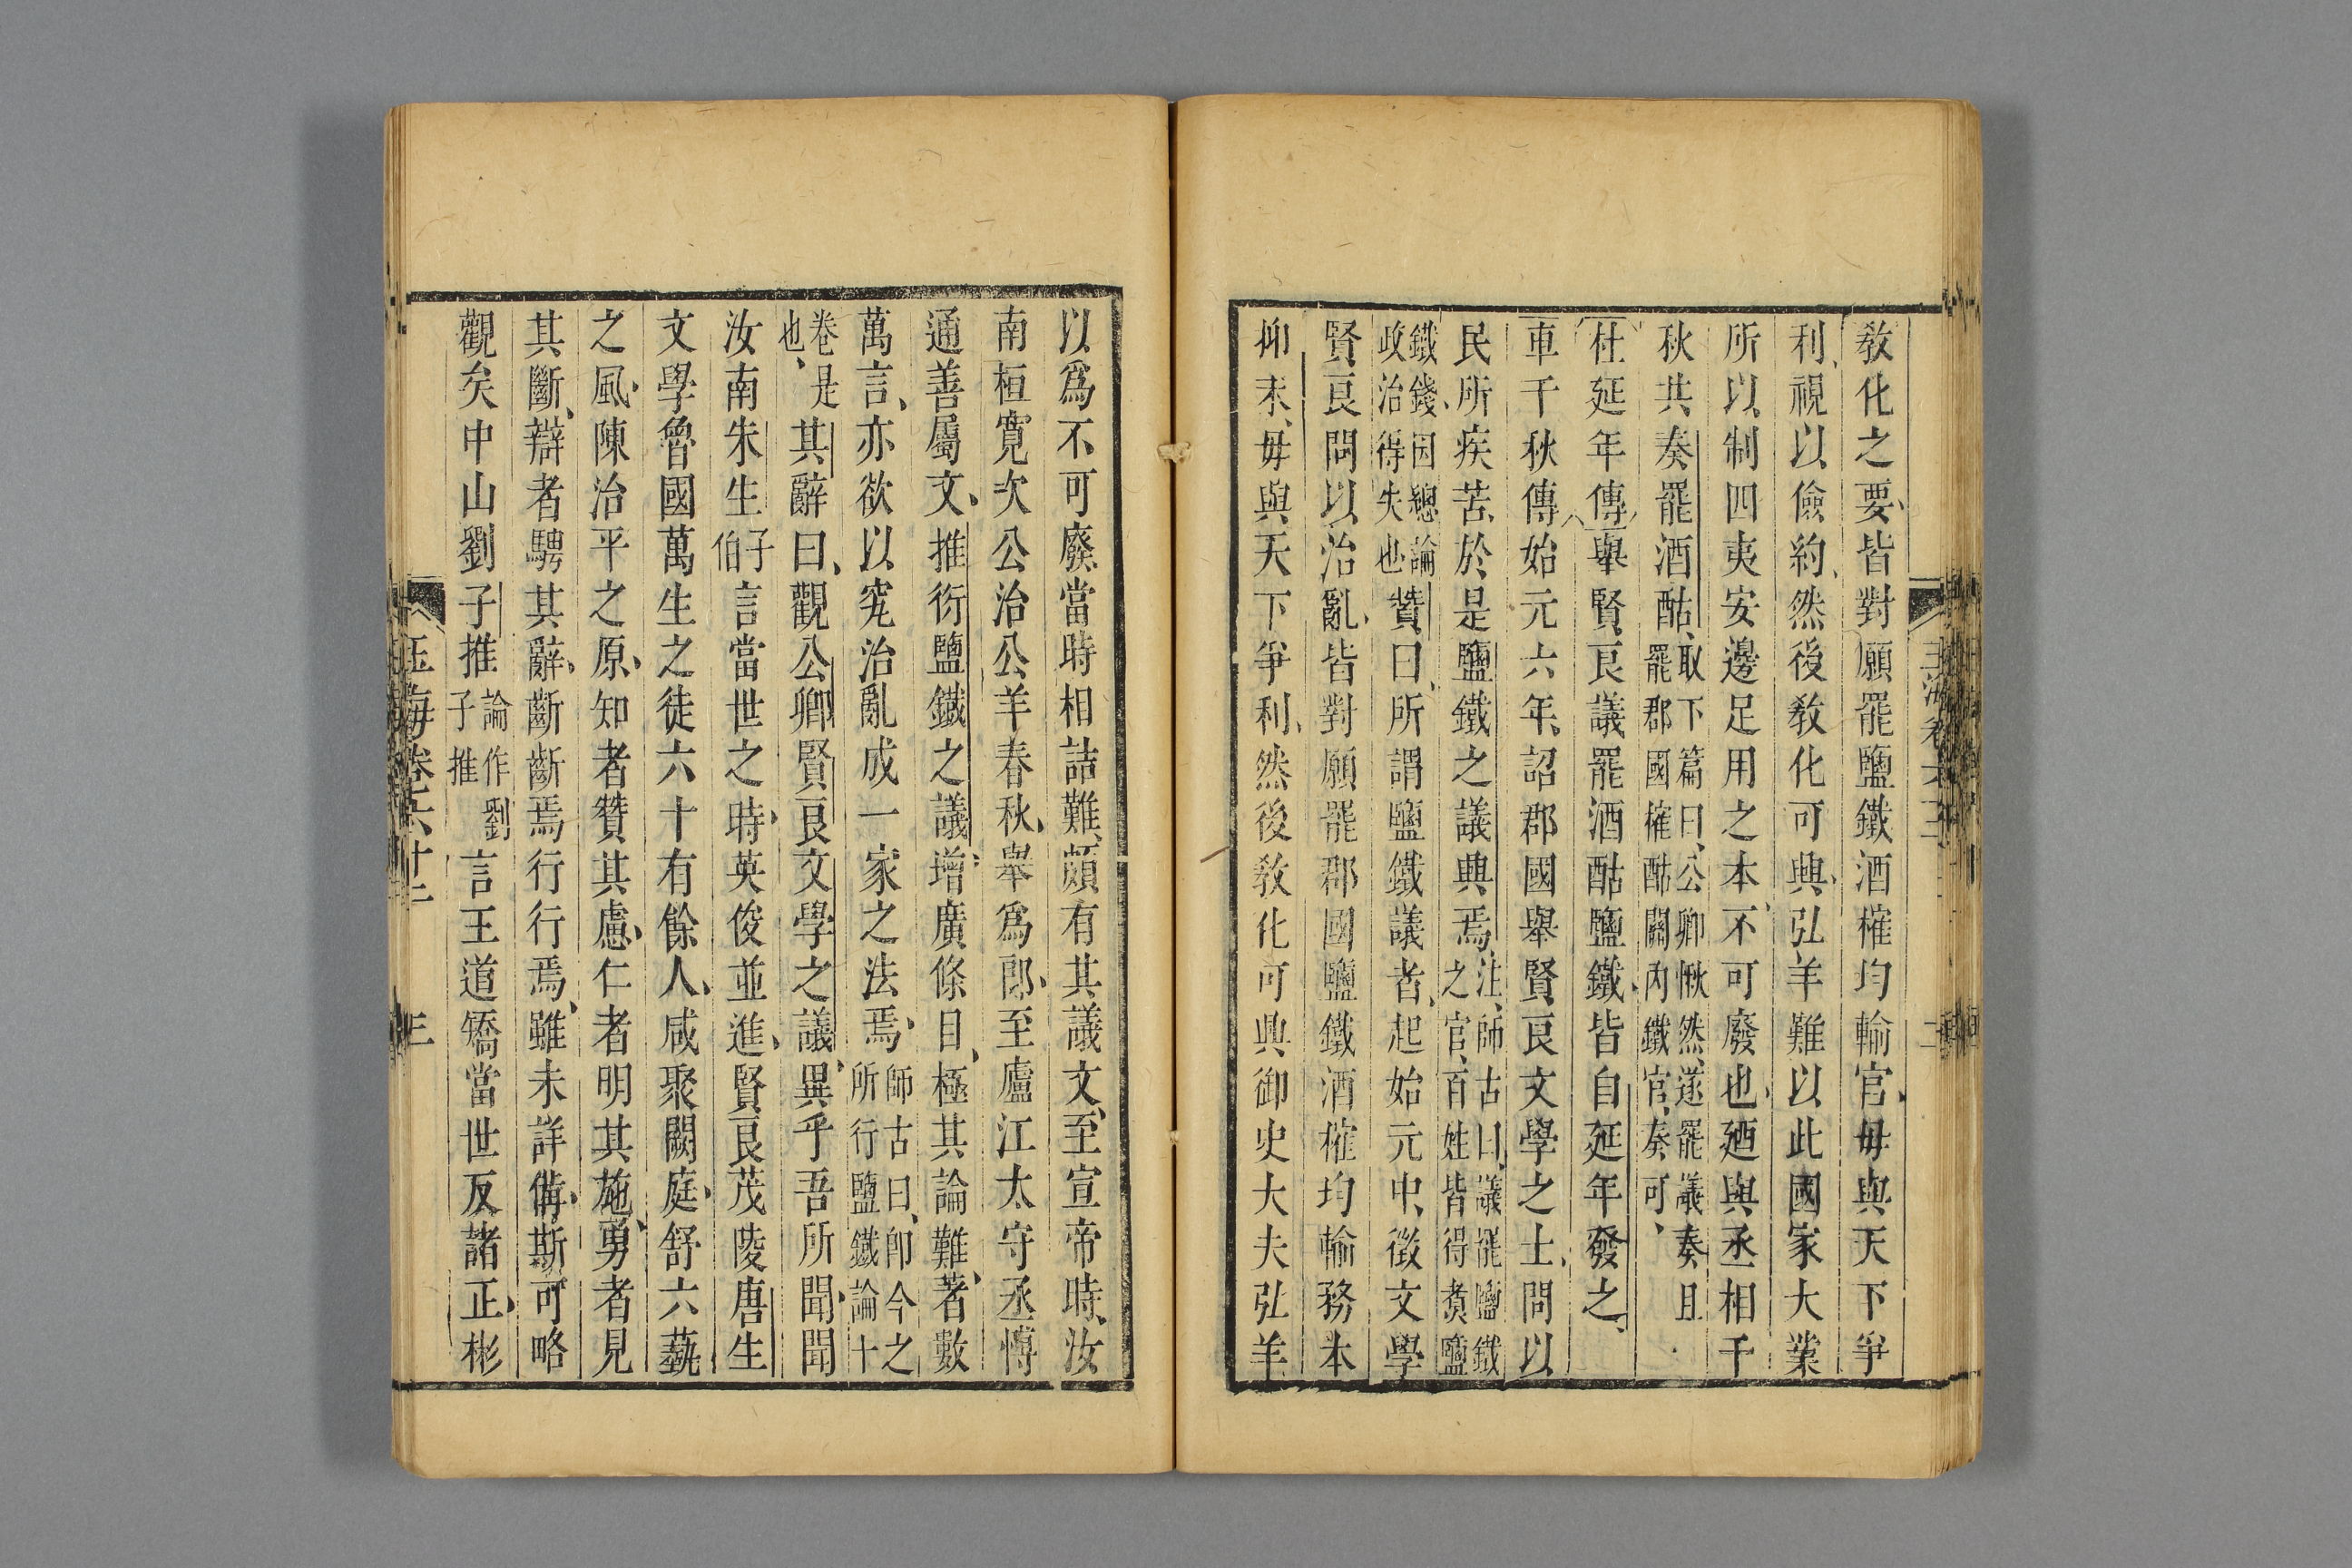 敎化之要皆對願罷鹽鐵酒榷均輸官毋與天下爭
利視以儉約然後敎化可興弘羊難以此國家大業
所以制四夷安邊足用之本不可廢也廼與丞相千
秋共奏罷酒酤取下篇曰公卿愀然遂罷議奏且
罷郡國榷酤關內鐵官奏可
杜延年傳舉賢良議罷酒酤鹽鐵皆自延年發之
車千秋傳始元六年詔郡國舉賢良文學之士問以
民所疾苦於是鹽鐵之議興焉注師古曰議罷鹽鐵
之官百姓皆得煑鹽
鐵錢因總論
政治得失也贊曰所謂鹽鐵議者起始元中徵文學
賢良問以治亂皆對願罷郡國鹽鐵酒榷均輸務本
抑末毋與天下爭利然後敎化可興御史大夫弘羊
以爲不可廢當時相詰難頗有其議文至宣帝時汝
南桓寬次公治公羊春秋舉爲郎至廬江太守丞博
通善屬文推衍鹽鐵之議增廣條目極其論難著數
萬言亦欲以究治亂成一家之法焉師古曰卽今之
所行鹽鐵論十
卷是
也其辭曰觀公卿賢良文學之議異乎吾所聞聞
汝南朱生子
伯言當世之時英俊並進賢良茂陵唐生
文學魯國萬生之徒六十有餘人咸聚闕庭舒六藝
之風陳治平之原知者贊其慮仁者明其施勇者見
其斷辯者騁其辭齗齗焉行行焉雖未詳備斯可略
觀矣中山劉子推論作劉
子推言王道矯當世反諸正彬
玉海卷六十二
三